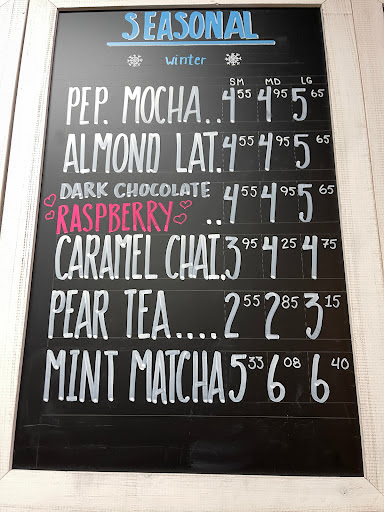 SEASONAL
winter
SM MD LG
PEP. MOCHA.. 4 55 4 95 5 65
ALMOND LAT. 4 55 4 95 5 65
DARK CHOCOLATE
RASPBERRY .. 4 55 4 95 5 65
CARAMEL CHAI. 3 95 4 25 4 75
PEAR TEA.... 2 55 2 85 3 15
MINT MATCHA 5 33 6 08 6 40